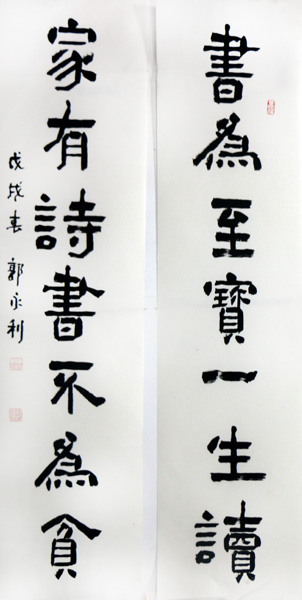 書為至寶一生讀
家有詩書不為貧
戊戌春 郭永利